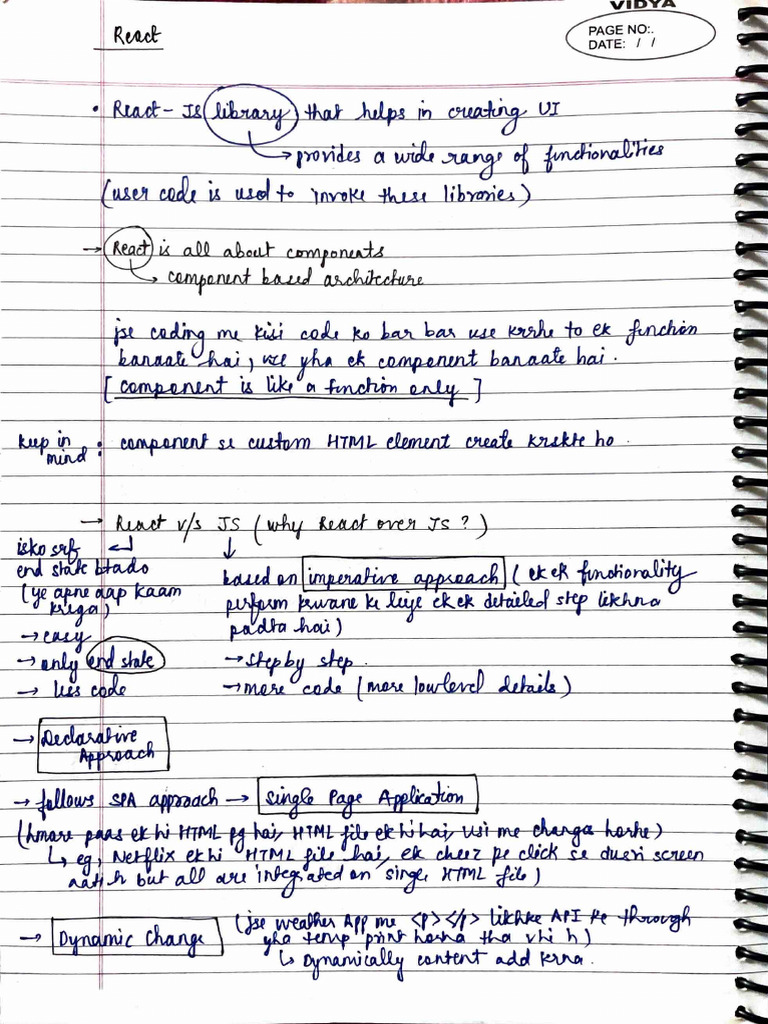 VIDYA
PAGE NO:.
DATE: / /
React
• React - JS library that helps in creating UI
↳ provides a wide range of functionalities
(user code is used to invoke these libraries)
→ React is all about components
↳ component based architecture
jse coding me kisi code ko bar bar use krrhe to ek function
banaate hai, vse yha ek component banaate hai.
[component is like a function only]
keep in
mind : component se custom HTML element create krskte ho.
→ React v/s JS (why React over JS?)
isko srf
end state btado
(ye apne aap kaam
krega)
→ easy
→ only end state
→ less code
based on imperative approach (ek ek functionality
perform krwane ke liye ek ek detailed step likhna
padta hai)
→ step by step.
→ more code (more low level details)
→ Declarative
Approach
→ follows SPA approach → Single Page Application
(hmare paas ek hi HTML pg hai, HTML file ek hi hai, usi me changes horhe)
↳ eg, Netflix ek hi HTML file hai, ek cheez pe click se dusri screen
aati h but all are integrated on single HTML file)
→ Dynamic Change (jse weather App me <p></p> likhke API ke through
yha temp print horha tha vhi h)
↳ Dynamically content add krna.